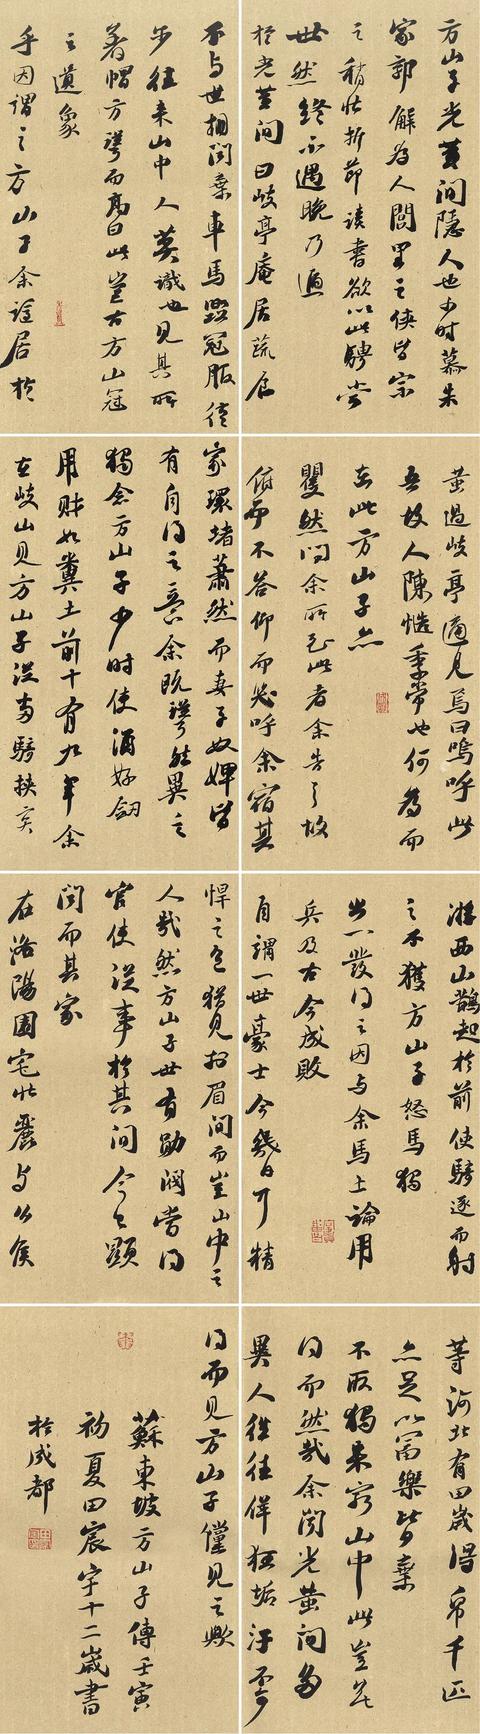 方山子光黄間隱人也少時慕朱
家郭解為人閭里之俠皆宗
之稍壯折節讀書欲以此騁當
世然終不遇晚乃遁
於光黄間曰岐亭庵居蔬食
不与世相聞棄車馬毀冠服徒
步往来山中人莫識也見其所
著帽方聳而高曰此豈古方山冠
之遺象
乎因謂之方山子余謫居於
黄過岐亭適見焉曰嗚呼此
吾故人陳慥季常也何為而
在此方山子亦
矍然問余所以至此者余告之故
俯而不答仰而笑呼余宿其
家環堵蕭然而妻子奴婢皆
有自得之意余既聳然異之
獨念方山子少時使酒好劍
用財如糞土前十有九年余
在岐山見方山子從兩騎挾二矢
游西山鵲起於前使騎逐而射
之不獲方山子怒馬獨
出一發得之因与余馬上論用
兵及古今成敗
自謂一世豪士今幾日耳精
悍之色猶見於眉間而豈山中之
人哉然方山子世有勛閥當得
官使從事於其間今已顯
聞而其家
在洛陽園宅壯麗与公侯
等河北有田歲得帛千匹
亦足以富樂皆棄
不取獨来窮山中此豈無
得而然哉余聞光黄間多
異人往往佯狂垢汙不可
得而見方山子儻見之歟
蘇東坡方山子傳壬寅
初夏田宸宇十二歲書
於成都